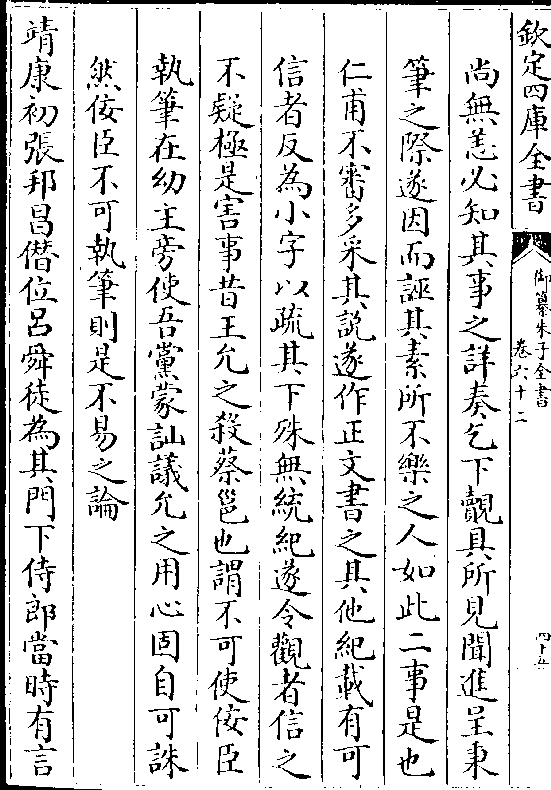 欽定四庫全書
御纂朱子全書
卷六十二
四十五
尚無恙必知其事之詳奏乞下覿具所見聞進呈秉
筆之際遂因而誣其素所不樂之人如此二事是也
仁甫不審多采其說遂作正文書之其他紀載有可
信者反為小字以疏其下殊無統紀遂令觀者信之
不疑極是害事昔王允之殺蔡邕也謂不可使佞臣
執筆在幼主旁使吾黨蒙訕議允之用心固自可誅
然佞臣不可執筆則是不易之論
靖康初張邦昌僭位呂舜徒為其門下侍郎當時有言